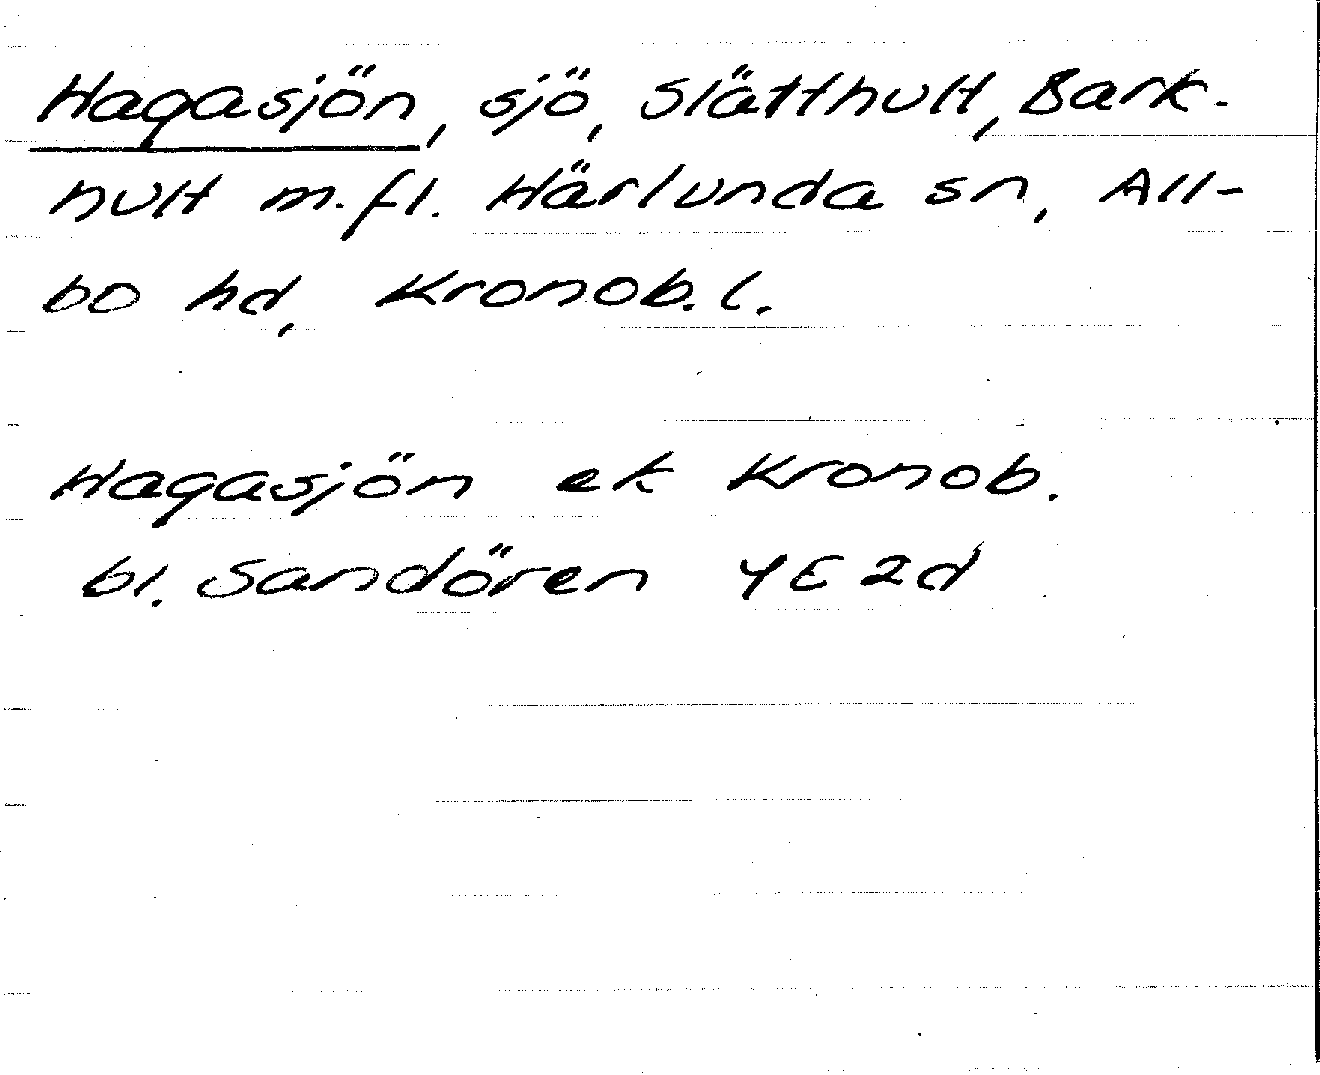 Hagasjön, sjö, Slätthult, Bark-
hult m.fl. Härlunda sn, All-
bo hd, Kronob. l.
Hagasjön ek Kronob.
bl. Sandören 4E2d